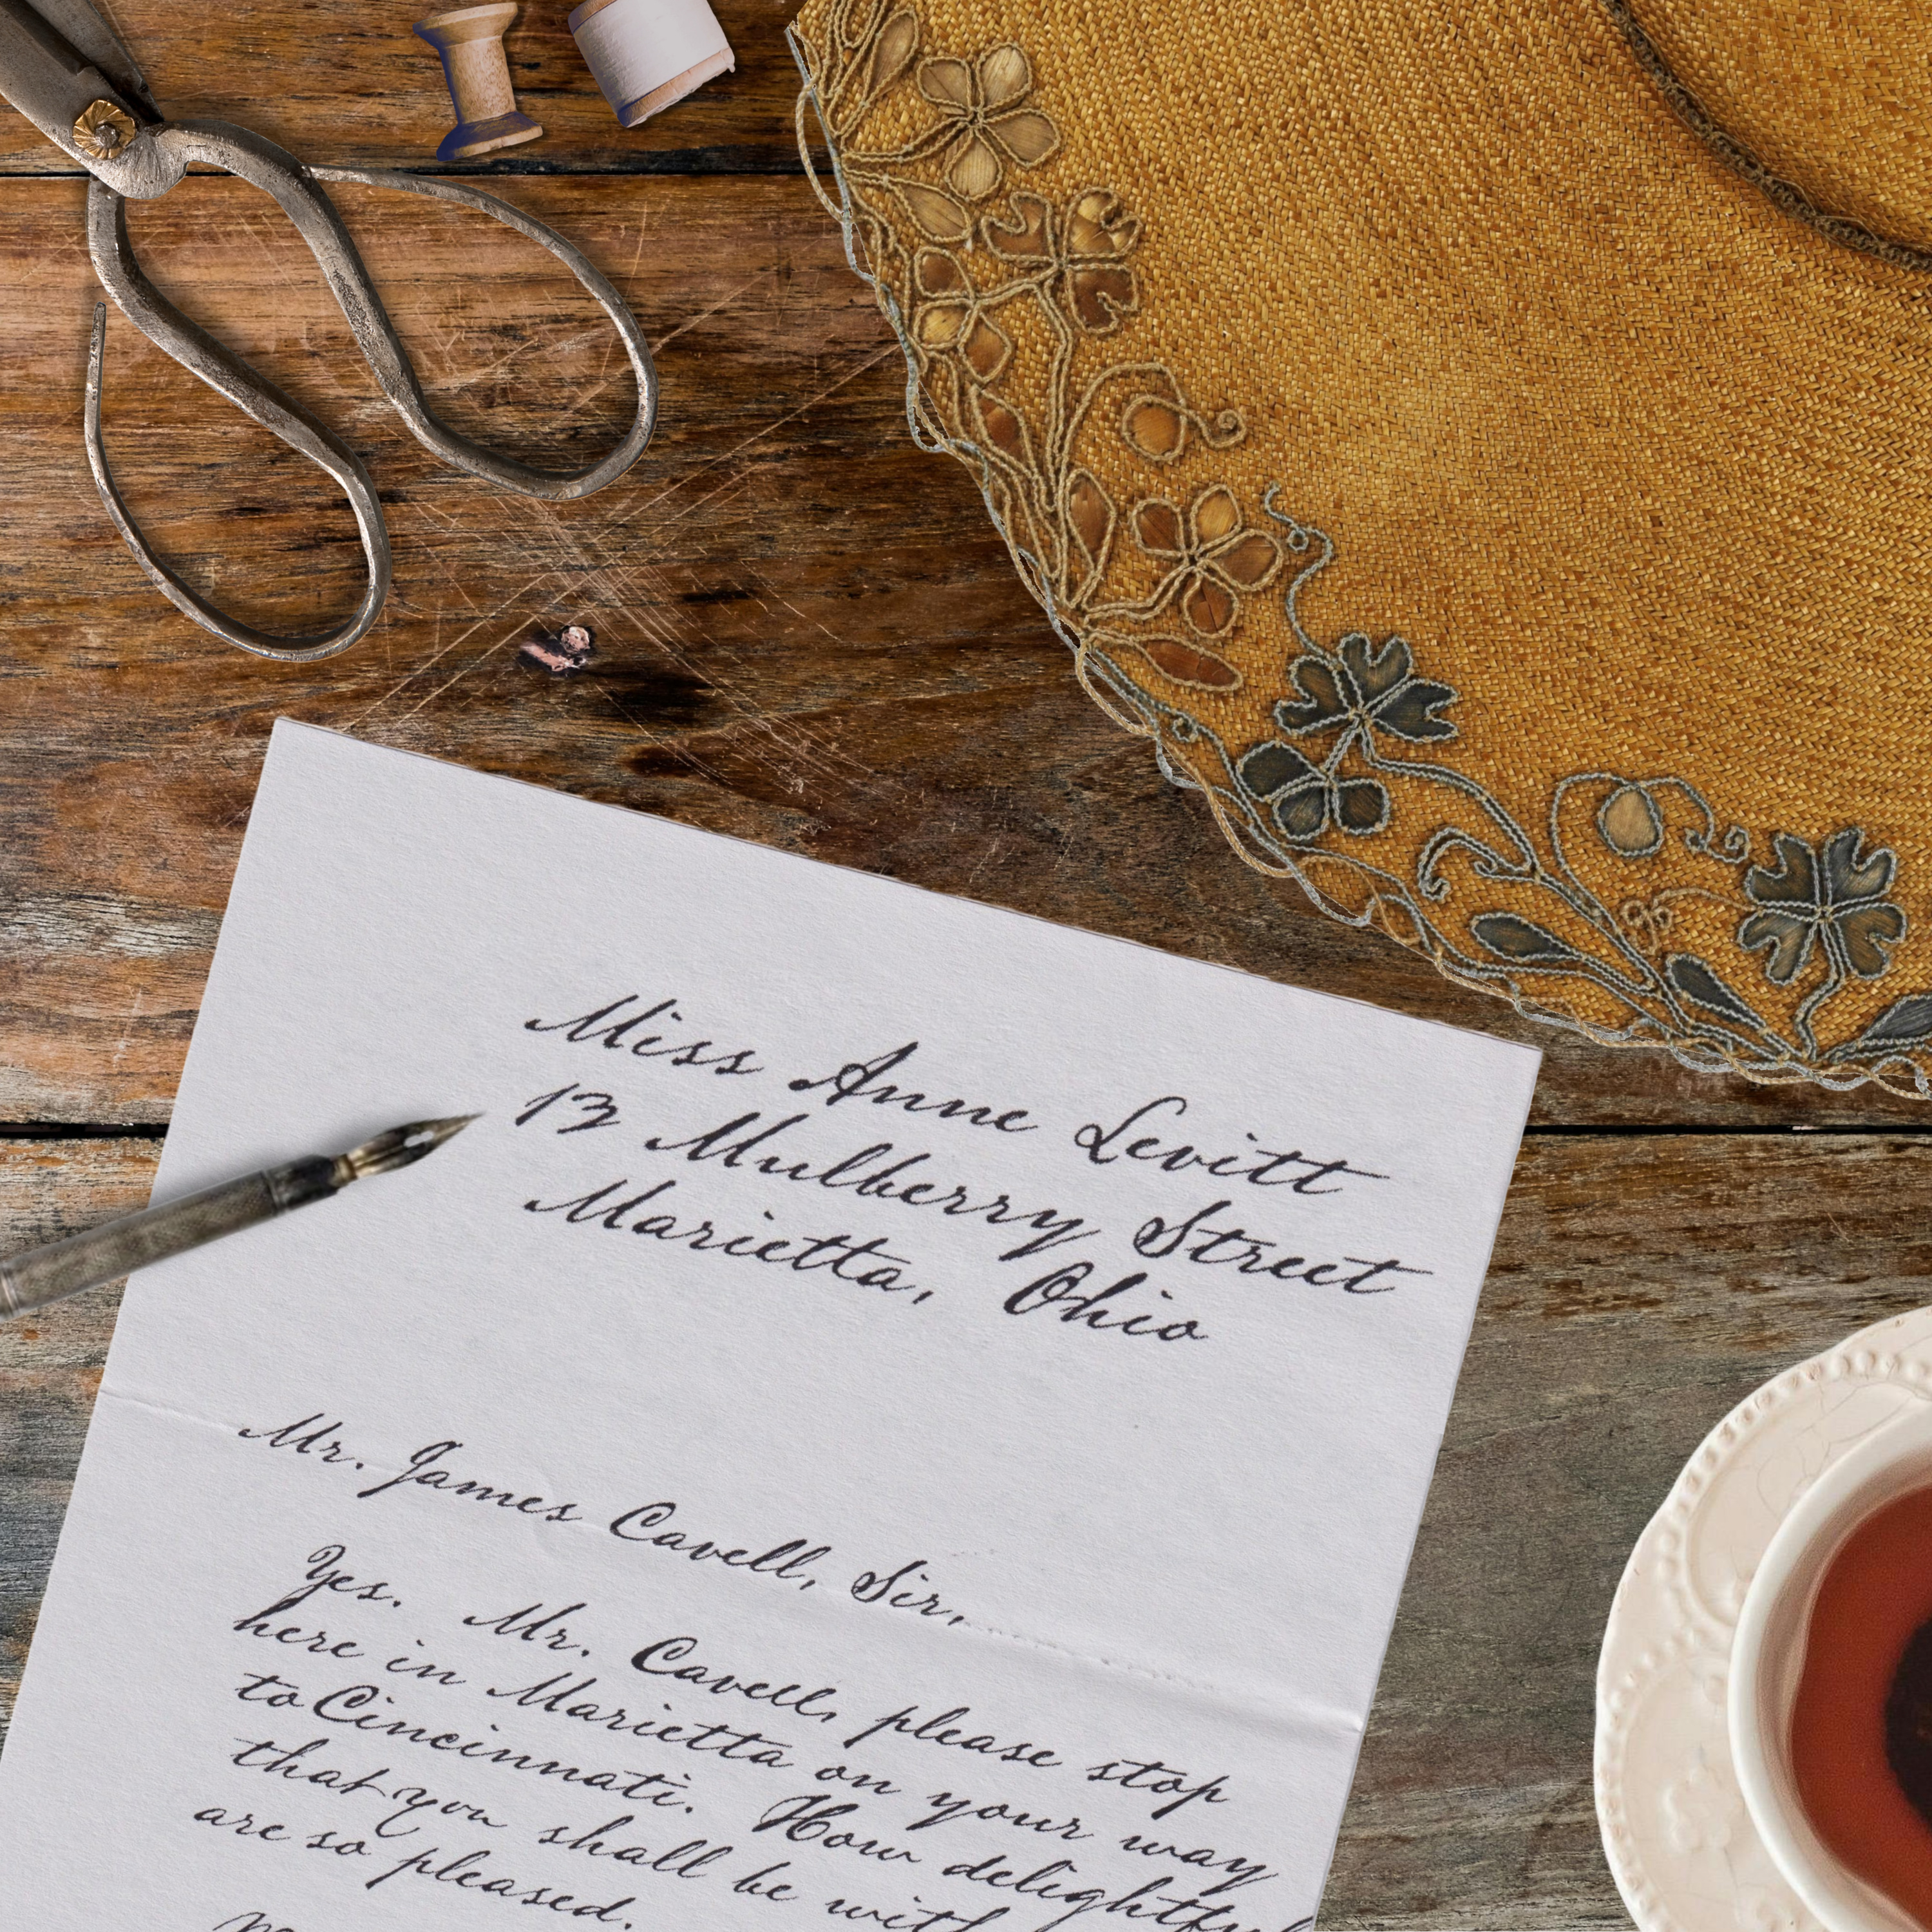 Miss Anne Levitt
13 Mulberry Street
Marietta, Ohio
Mr. James Cavell, Sir,
Yes. Mr. Cavell, please stop
here in Marietta on your way
to Cincinnati. How delightful
that you shall be with
are so pleased.